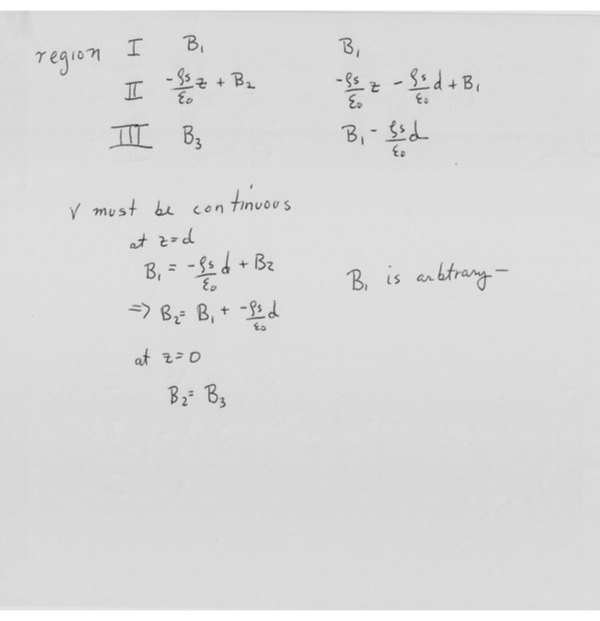 region I B₁ B₁
II -ρs/ε₀ z + B₂ -ρs/ε₀ z - ρs/ε₀ d + B₁
III B₃ B₁ - ρs/ε₀ d
V must be continuous
at z=d
B₁ = -ρs/ε₀ d + B₂
B₁ is arbtrary —
=> B₂= B₁ + -ρs/ε₀ d
at z=0
B₂= B₃